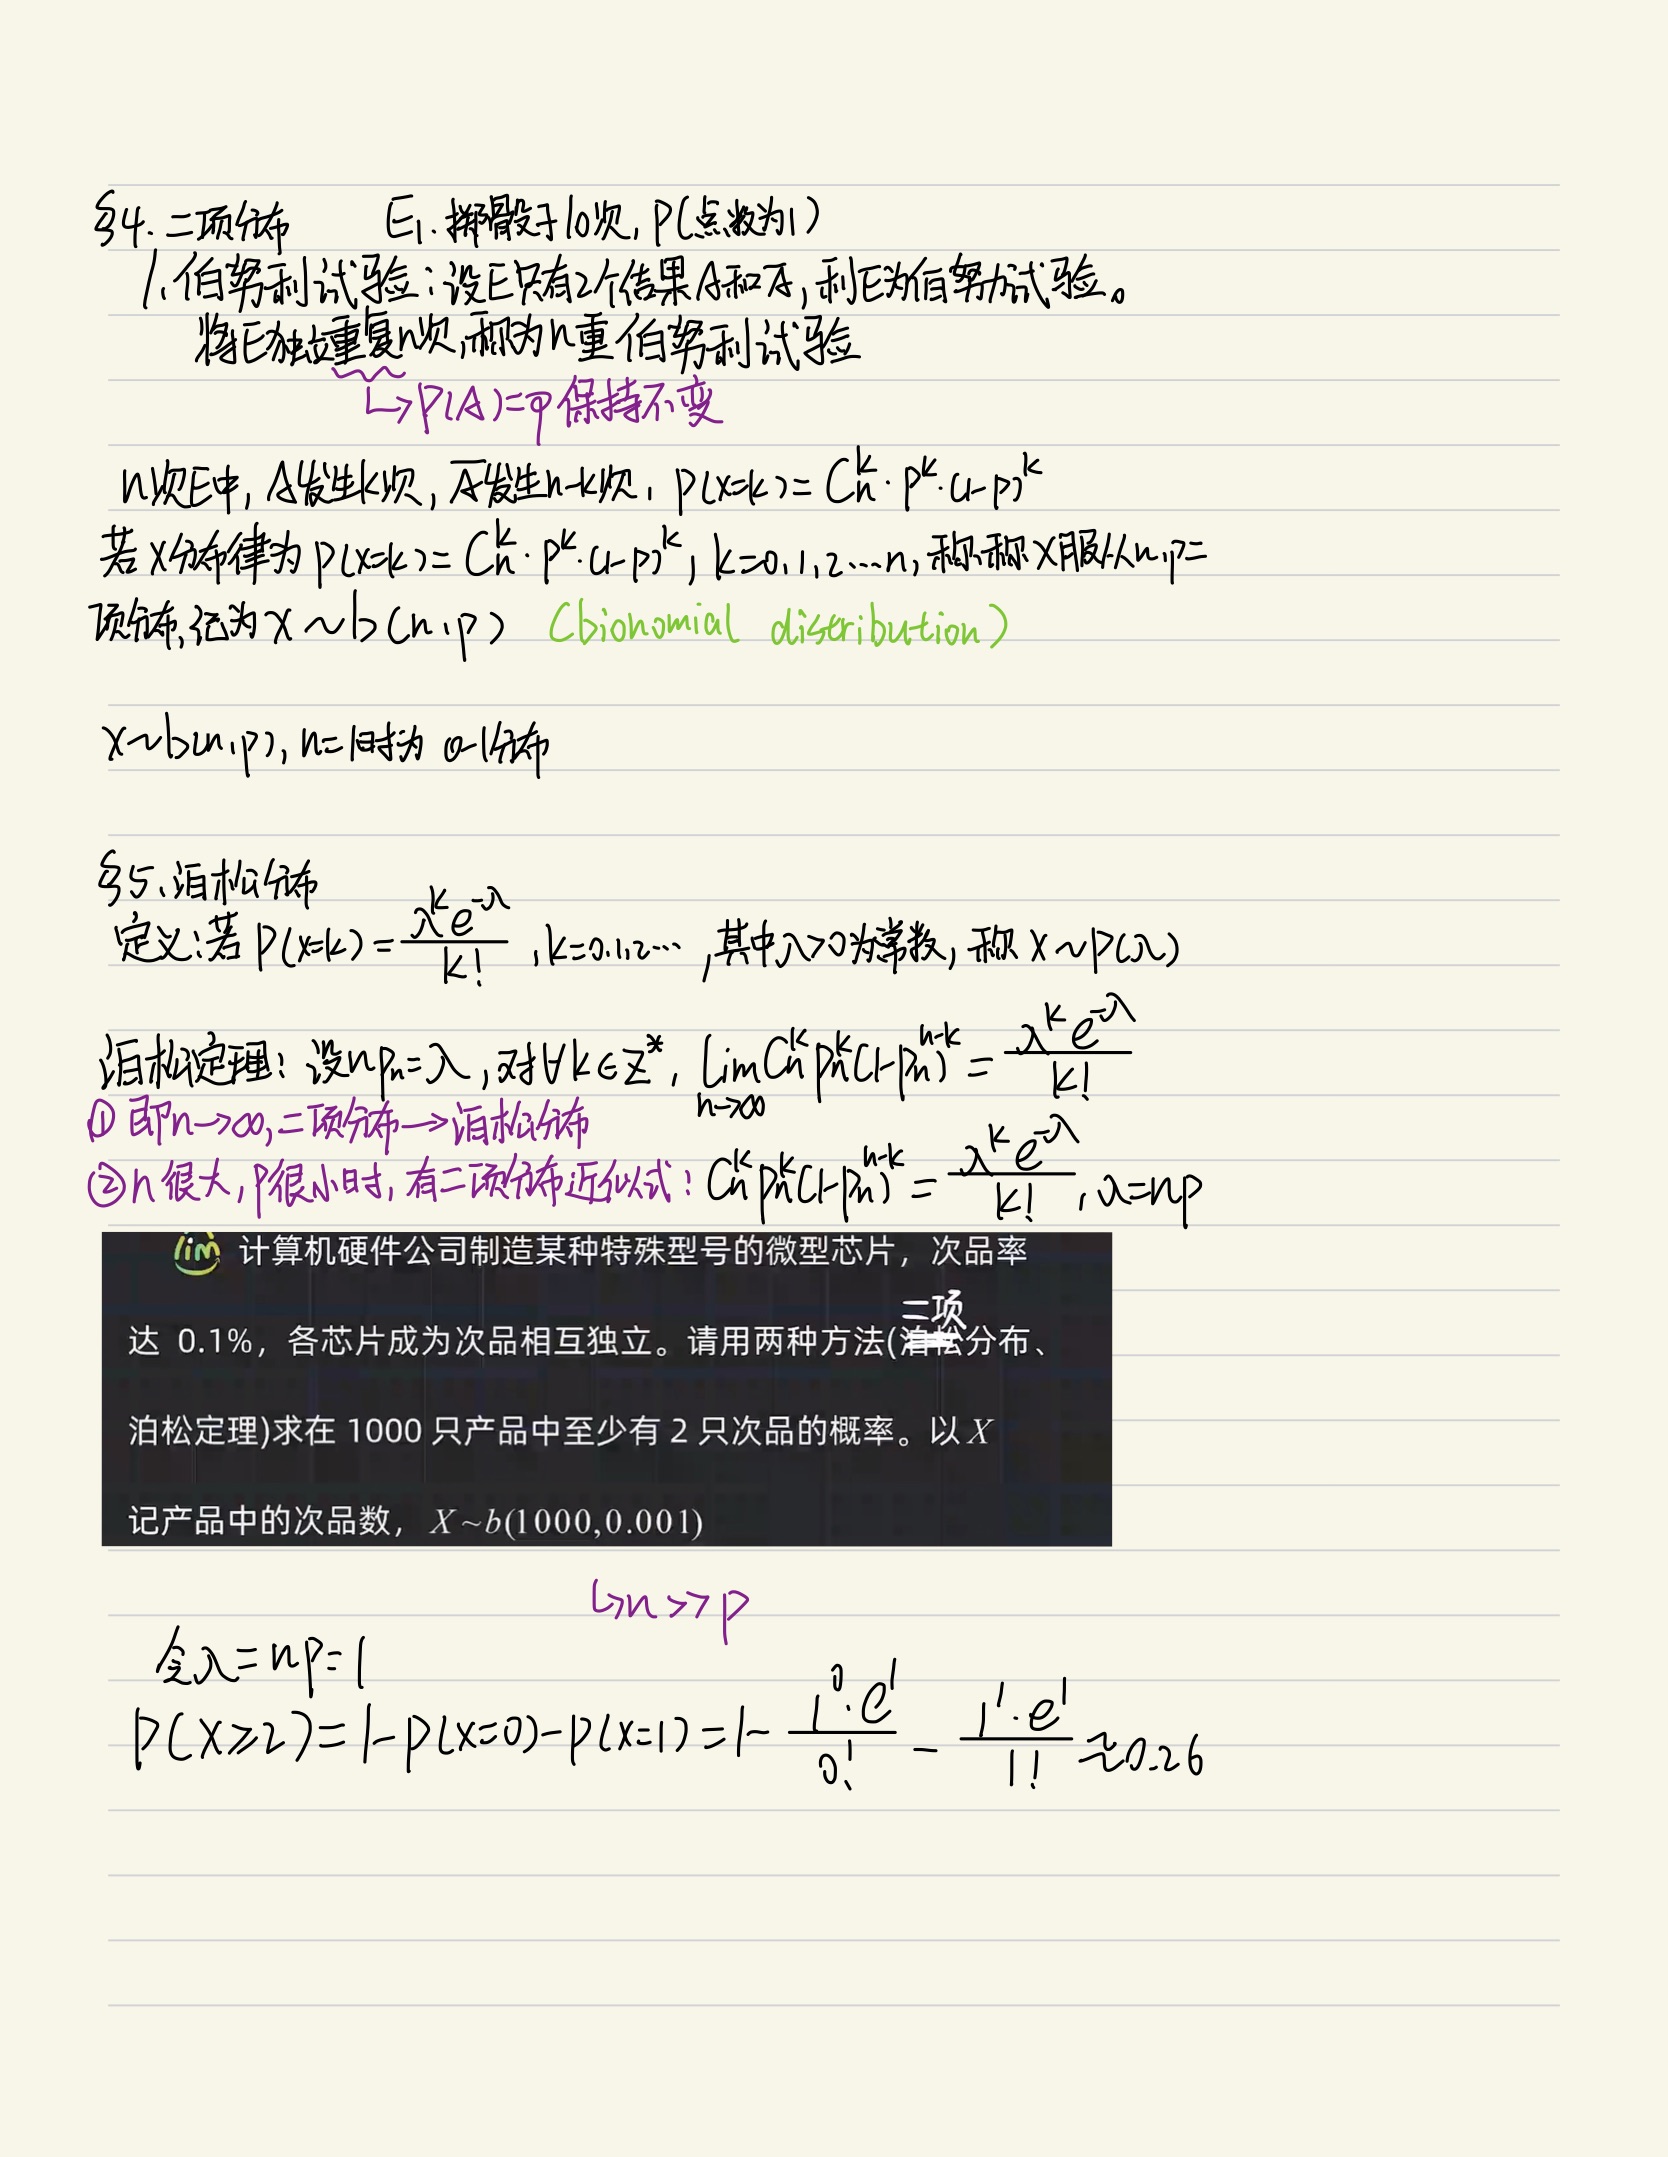 §4. 二项分布 E₁. 掷骰子10次, P(点数为1)
1. 伯努利试验:设E只有2个结果A和A̅, 则E为伯努力试验。
将E独立重复n次,称为n重伯努利试验
↳P(A)=p 保持不变
n次E中, A发生k次, A̅发生n-k次, P(X=k)= Cₙᵏ·pᵏ·(1-p)ᵏ
若X分布律为P(X=k)= Cₙᵏ·pᵏ·(1-p)ᵏ, k=0,1,2…n, 称称X服从n,p二
项分布,记为X~b(n,p) (bionomial distribution)
X~b(n,p), n=1时为 0-1分布
§5. 泊松分布
定义:若 P(X=k)= λᵏe^-λ / k! , k=0.1,2… ,其中λ>0为常数, 称 X~P(λ)
泊松定理: 设npₙ=λ, 对∀k∈Z*, lim n→∞ Cₙᵏpₙᵏ(1-pₙ)ⁿ⁻ᵏ = λᵏe^-λ / k!
① 即n→∞,二项分布→泊松分布
② n很大, p很小时, 有二项分布近似式: Cₙᵏpₙᵏ(1-pₙ)ⁿ⁻ᵏ = λᵏe^-λ / k! , λ=np
lim 计算机硬件公司制造某种特殊型号的微型芯片，次品率
二项
达 0.1%，各芯片成为次品相互独立。请用两种方法(泊松分布、
泊松定理)求在 1000 只产品中至少有 2 只次品的概率。以 X
记产品中的次品数， X~b(1000,0.001)
↳n>>p
令λ=np=1
P(X≥2)=1-P(X=0)-P(X=1)=1- 1⁰·e¹ / 0! - 1¹·e¹ / 1! ≈0.26